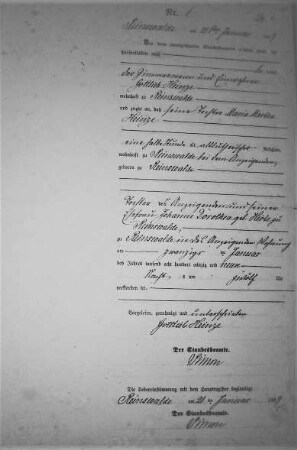 Nr. 1
Reinswalde am 21ten Januar 9
Vor dem unterzeichneten Standesbeamten erschien heute, der
Persönlichkeit nach
der Zimmermann und Einwohner
Gottlieb Heinze
wohnhaft in Reinswalde
und zeigte an, daß seine Tochter Maria Martha
Heinze
eine halbe Stunde alt
wohnhaft zu Reinswalde bei dem Anzeigenden,
geboren zu Reinswalde
Tochter des Anzeigenden und seiner
Ehefrau Johanne Dorothea geb. zu
Reinswalde,
zu Reinswalde in des Anzeigenden Wohnung
am zwanzigsten Januar
des Jahres tausend acht hundert achtzig und neun
Nachts um zwölf Uhr
verstorben sei.
Vorgelesen, genehmigt und unterschrieben
Gottlieb Heinze
Der Standesbeamte.
Die Uebereinstimmung mit dem Hauptregister beglaubigt
Reinswalde am 21 ten Januar 9
Der Standesbeamte.